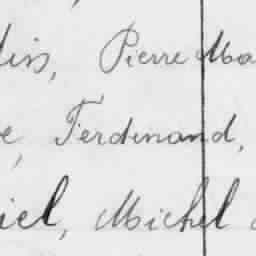 lis, Pierre Ma
e, Ferdinand,
iel, Michel